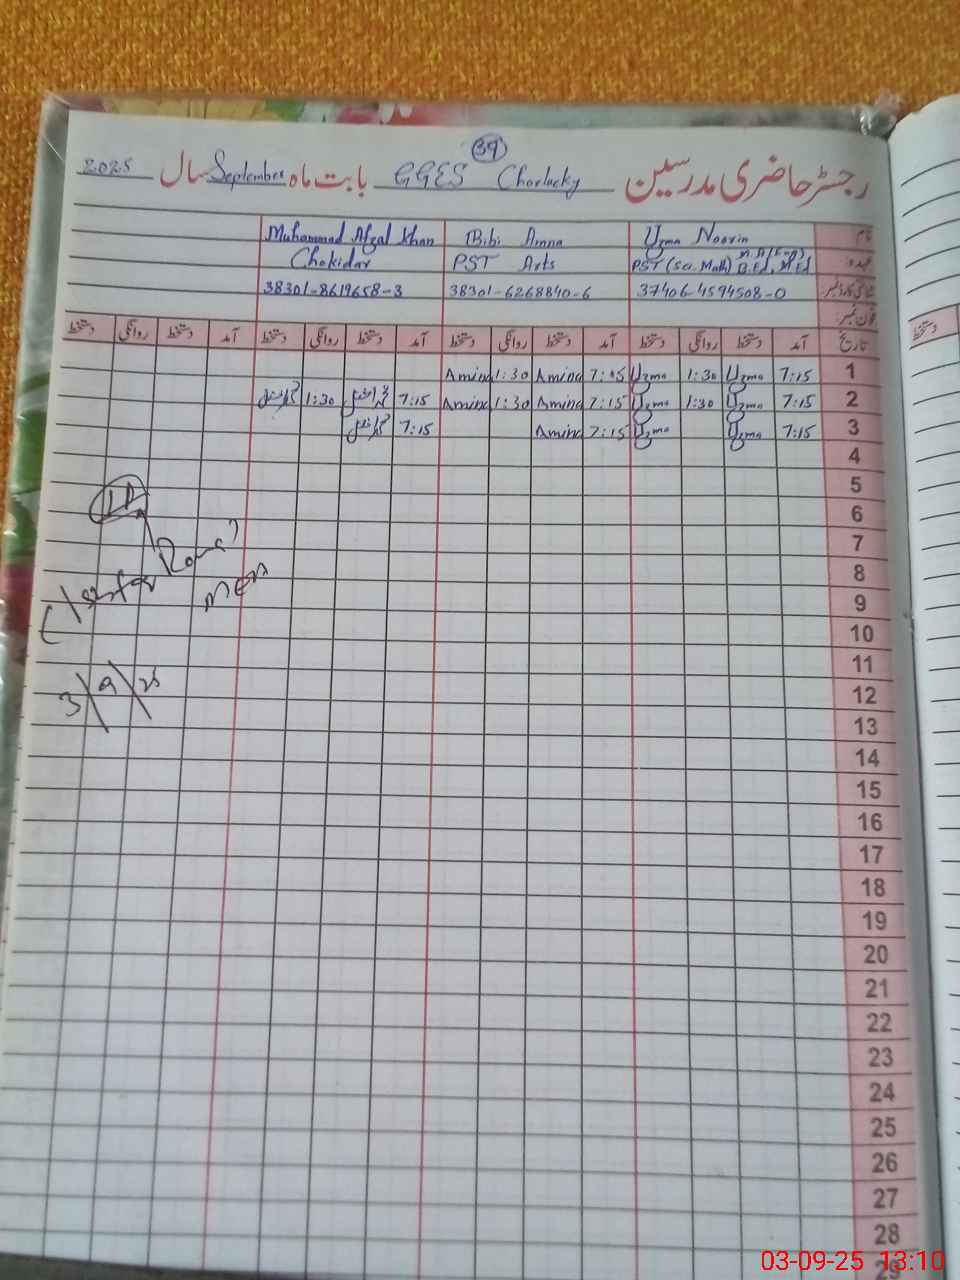 39
رجسٹر حاضری مدرسین GGES Chorlucky بابت ماہ September سال 2025
نام Uzma Noorin Bibi Amna Muhammad Afzal Khan
عہدہ PST (Sci. Math) M.A(Eng) B.Ed, M.Ed PST Arts Chokidar
شناختی کارڈ نمبر 37406-4594508-0 38301-6268840-6 38301-8619658-3
فون نمبر
تاریخ آمد دستخط روانگی دستخط آمد دستخط روانگی دستخط آمد دستخط روانگی دستخط آمد دستخط روانگی دستخط
1 7:15 Uzma 1:30 Uzma 7:15 Amina 1:30 Amina
2 7:15 Uzma 1:30 Uzma 7:15 Amina 1:30 Amina 7:15 1:30
3 7:15 Uzma Uzma 7:15 Amina 7:15
4
5
6
7
8
9
10
11
12
13
14
15
16
17
18
19
20
21
22
23
24
25
26
27
28
29
MEA
3/9/25
03-09-25 13:10